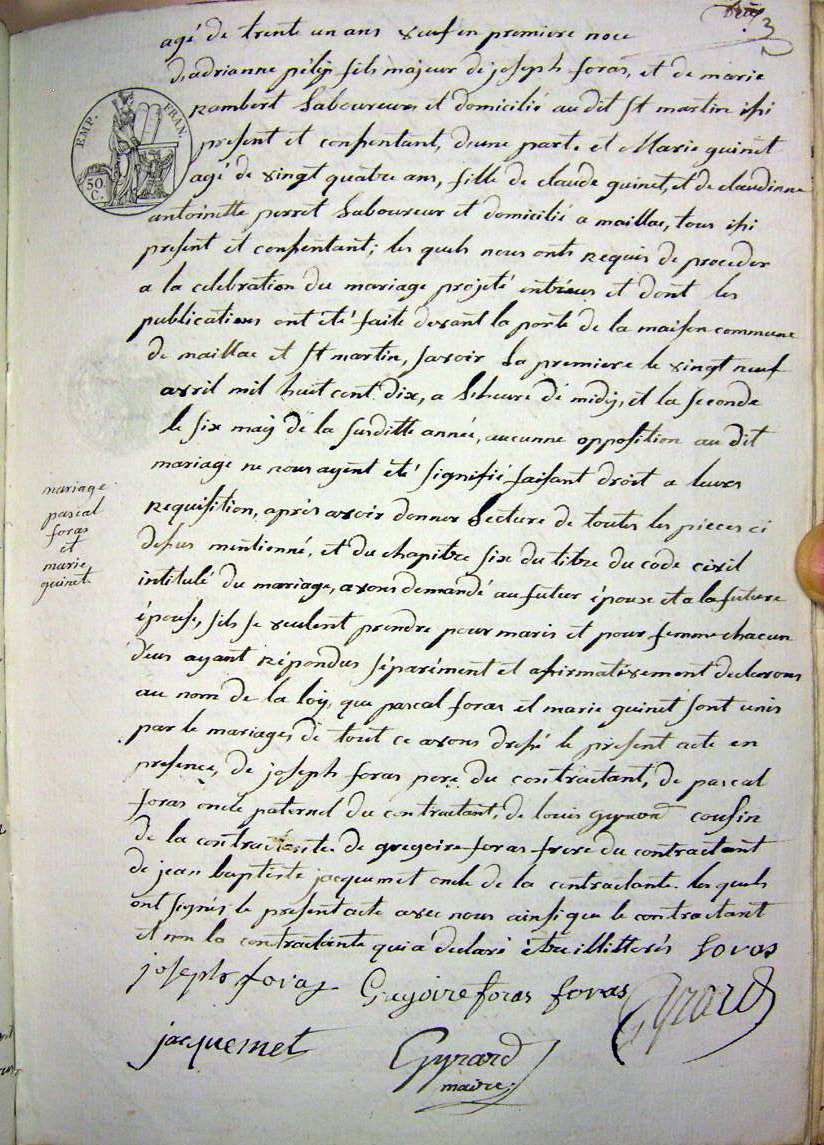 3
agé de trente un ans veuf en premiere noce
d'adrianne pélip fils majeur de joseph foras, et de marie
Rambert Laboureur et domicilié au dit St martin isi
present et consentant, d'une parte et Marie guinet
agé de vingt quatre ans, fille de claude guinet, et de claudinne
antoinette perret Laboureur et domicilié a maillac, tous isi
present et consentant; les quels nous onts Requis de proceder
a la celebration du mariage projeté entr'eus et dont les
publications ont été faite devant la porte de la maison commune
de maillac et St martin, savoir La premiere le vingt neuf
avril mil huit cent dix, a L'heure de midy, et la seconde
le six maÿ de la susditte année, aucunne opposition au dit
mariage ne nous ayent été signifié faisant droit a leurs
Requisition, aprés avoir donner Lecture de toutes les pieces ci
desus mentionné, et du chapitre six du titre du code civil
intitulé du mariage, avons demandé au futur époux et a la future
épouse, s'ils se veulent prendre pour maris et pour femme chacun
d'eus ayant Répondus séparément et afirmativement declarons
au nom de la loÿ, que pascal foras et marie guinet sont unis
par le mariage, de tout ce avons dresé le present acte en
presence, de joseph foras pere du contractant, de pascal
foras oncle paternel du contractant, de louis Gyrard cousin
de la contractante de gregoire foras frere du contractant
de jean baptiste jacquemet oncle de la contractante. les quels
ont signés le present acte avec nous ainsi que le contractant
et non la contractante qui a déclaré être illitterés foras
joseph foras Gregoire foras foras Gyrard
jacquemet Gyrard
maire
EMP. FRAN.
50.
C.
mariage
pascal
foras
et
marie
guinet